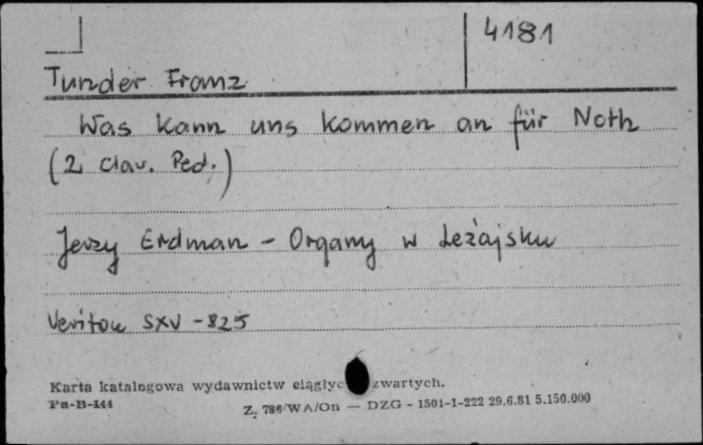 4181
Tunder Franz
Was kann uns kommen an für Noth
(2 clav. Ped.)
Jerzy Erdman - Organy w Leżajsku
Veriton SXV - 825
Karta katalogowa wydawnictw ciągłyc zwartych.
Pu-B-144
Z. 786 WA/On — DZG - 1501-1-222 29.6.81 5.150.000